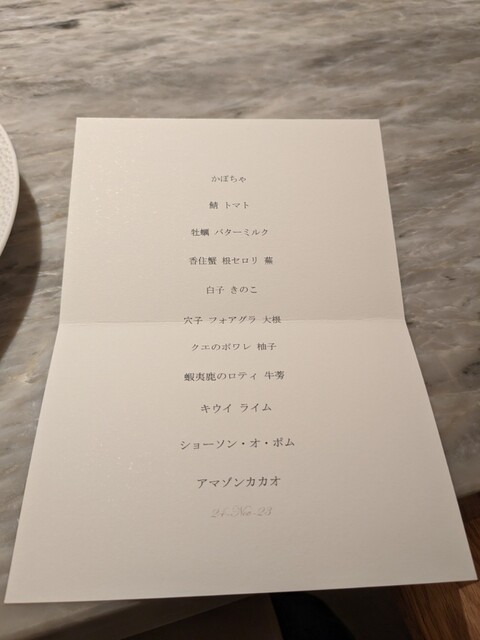 かぼちゃ
鯖 トマト
牡蠣 バターミルク
香住蟹 根セロリ 蕪
白子 きのこ
穴子 フォアグラ 大根
クエのポワレ 柚子
蝦夷鹿のロティ 牛蒡
キウイ ライム
ショーソン・オ・ポム
アマゾンカカオ
24-Nov-23